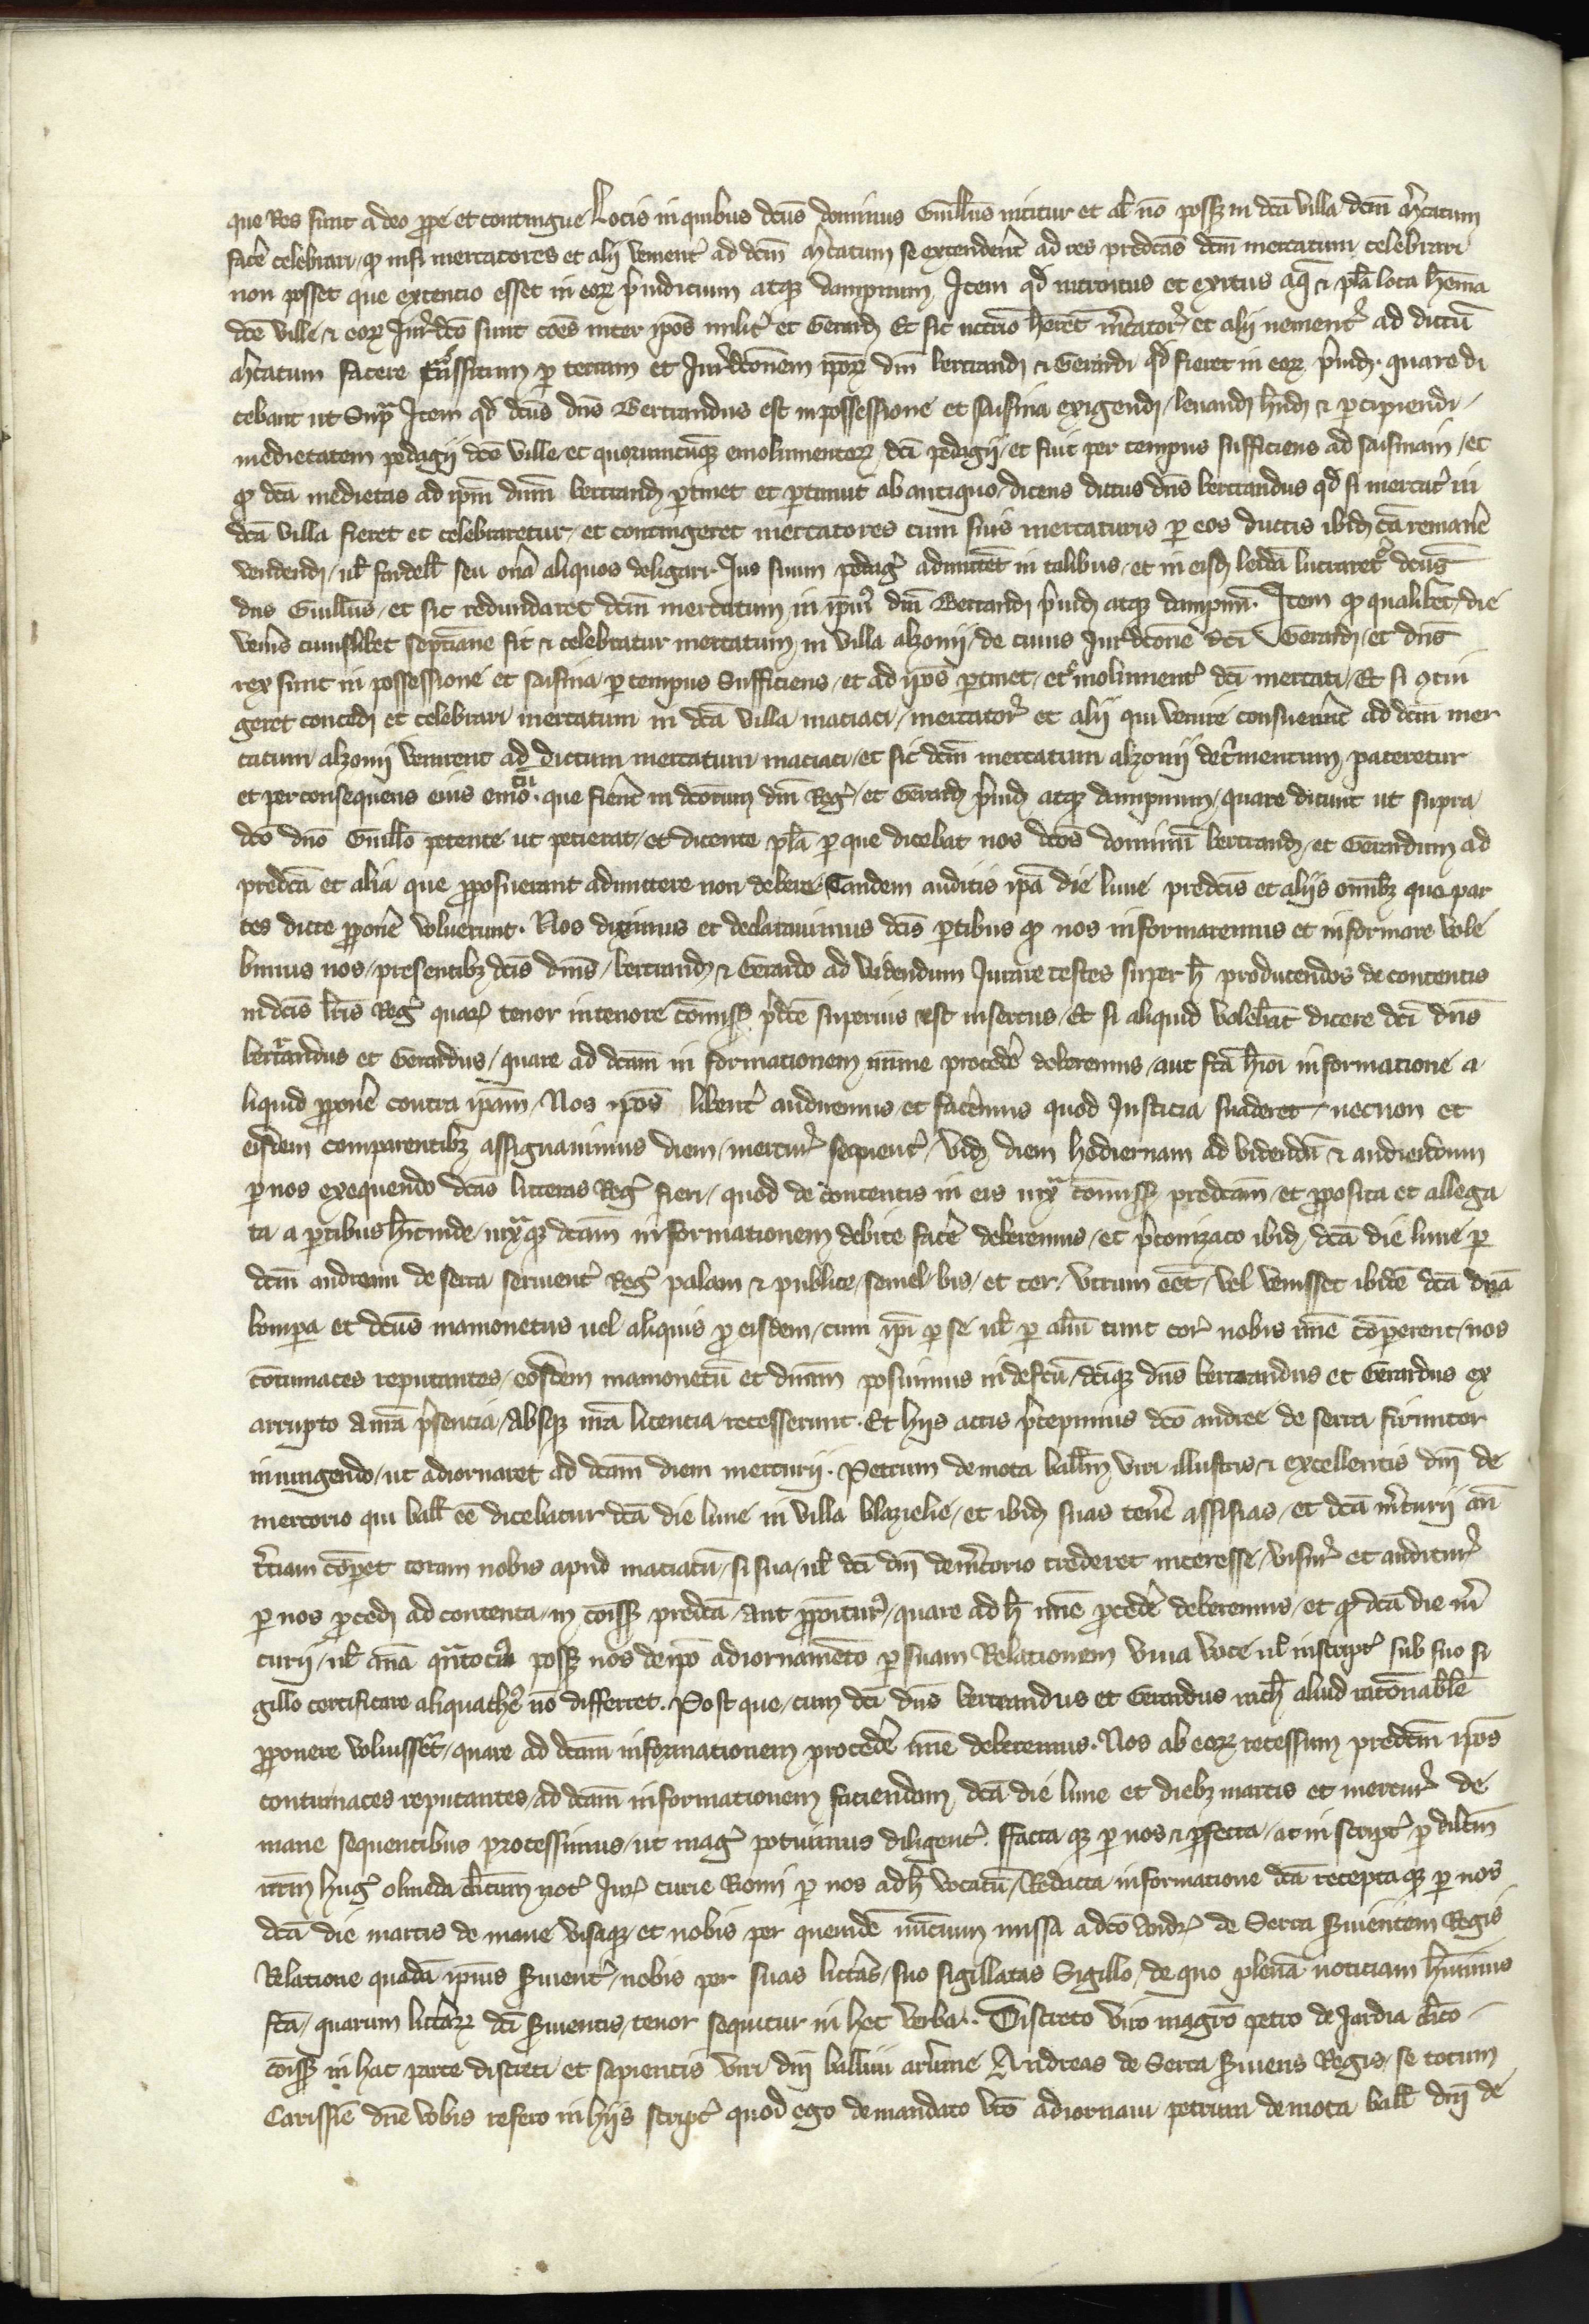 que Res sunt adeo prope et contingue Locis in quibus dcus dominus Guillus nititur et al no posset in dca villa dcm mercatum
facere celebrari, qz nisi mercatores et alii venient ad dcm mercatum se extenderent ad res predcas dcm mercatum celebrari
non posset que extencio esset in eorum preiudicium atqz dampnum Item qd introitus et exitus aqz & pla loca
dce ville & eorum Jurdco sunt coes inter ipos milite et Gerardum Et sic mercatores et alii venientes ad dictu
mercatum facere transsitum per terram et Jurdconem ipor dni bertrandi & Gerardi qd fieret in eorum preiud quare di
cebant ut Supra Item qd dcus dns Bertrandus est in possessione et saisina exigendi, levandi hndi & percipiendi
medietatem pedagii dce ville et quorumcumqz emolumentorum dci pedagii, et fuit per tempus sufficiens ad saisinam, et
qz dca medietas ad ipm dnm bertrandum pertinet et pertinuit ab antiquo, dicens dictus dns bertrandus qd si mercatum in
dca villa fieret et celebraretur, et contingeret mercatores cum suis mercaturis per eos ductis ibidem ca remanere
vendendi, vl fardell seu onera aliquos deligari Jus suum pedagii admitteret in talibus, et in eisdem leida lucraretur dcus
dns Guillus, et sic redundaret dcm mercatum in ipius dni Bertrandi preiud atqz dampnum. Item qz qualibet die
veneris cuiuslibet septimane fit & celebratur mercatum in villa alzonii, de cuius Jurdcone dci Gerardus, et dns
rex sunt in possessione et saisina per tempus Sufficiens, et ad ipos pertinet, et emolument dci mercati, Et si contin
geret concedi et celebrari mercatum in dca villa maciaci, mercatores et alii qui venire consueverunt ad dcm mer
catum alzonii venirent ad dictum mercatum maciaci, et sic dcm mercatum alzonii detrimentum pateretur
et per consequens eius que fierent in dcorum dni Regis, et Gerardi preiud atqz dampnum, quare dicunt ut supra
dco dno Guillo petente ut petierat, et dicente pla per que dicebat nos dcos dominum bertrandum, et Gerardum ad
predca et alia que proposuerant admittere non debere. Tandem auditis ipa die lune predcis et aliis omibz que par
tes dicte proponere voluerunt. Nos diximus et declaravimus dcis partibus qz nos informaremus et informare vole
bimus nos, presentibz dcis dnis, bertrando & Gerardo ad videndum Jurare testes super h producendos de contentis
in dcis lris Regis quarum tenor in tenore comissionis predce superius est insertus, Et si aliquid volebant dicere dci dns
bertrandus et Gerardus, quare ad dcam in formationem mime procedere deberemus, aut fca hmoi informatione a
liquid proponere contra ipam, Nos ipos libenter audiremus et faceremus quod Justicia suaderet, necnon et
eisdem comparentibz assignavimus diem, mercurii sequentem, videlicet diem hodiernam ad videndu & audiendum
per nos exequendo dcas litteras Regis fieri, quod de contentis in eis iuxta comiss predcam, et proposita et allega
ta a partibus hincinde, iuxtaqz dcam informationem debite facere deberemus, et preconizato ibidem dca die lune per
dcm andream de serra servientem Regis palam & publice, semel, bis, et ter, utrum eet, vel venisset ibide dca dna
lompa et dcus mamonetus vel aliquis pro eisdem, cum ipi per se vl per aliu tunc coram nobis mime comperent, nos
contumaces reputantes, eosdem mamonetu et dnam posuimus in defcu, dciqz dns bertrandus et Gerardus ex
arrupto a nra presencia, absqz nra licencia recesserunt. Et hiis actis precepimus dco andree de serra firmiter
iniungendo, ut adiornaret ad dcam diem mercurii. Petrum de mota ballivum viri illustris & excellentis dni de
mercorio qui ball ee dicebatur dca die lune in villa blazielie, et ibidem suas tenere assisias, et dca mercurii an
terciam coperet coram nobis apud maciacu, si sua, vl dci dni de mercorio crederet interesse, visur et auditur
per nos procedi ad contenta, in comiss predca, aut propositur, quare ad h mime procedere deberemus, et qz dca die mer
curii, vl ana quantocius posset nos de ipo adiornamento per suam Relationem viva voce vl in script sub suo si
gillo certificare aliquathenus no differret. Post que, cum dci dns bertrandus et Gerardus nich aliud racionabile
proponere voluissent, quare ad dcam informationem procedere mime deberemus. Nos ab eorum recessum predcm ipos
contumaces reputantes, ad dcam informationem faciendam, dca die lune et diebz martis et mercurii de
mane sequentibus processimus, ut magis potuimus diligenter. ffacta qz per nos & perfecta, ac in script per dilcm
nrm hug olmeda clicum not Jur curie Riomi per nos ad h vocatu, Redacta informatione dca receptaqz per nos
dca die martis de mane visaqz, et nobis per quemde nuncium missa a dco andr de Serra servientem Regis
Relatione quada ipius servient, nobis per suas litteras, suo sigillatas Sigillo, de quo plena noticiam huimus
fca, quarum litterarum dci servientis, tenor sequitur in hec verba. Discreto viro magro petro de Jardia clico
comiss in hac parte discreti et sapientis viri dni ballivi arvernie Andreas de Serra serviens Regis, se totum
Carissime dne vobis refero in hiis script quod ego de mandato vro adiornavi petrum de mota ball dni de